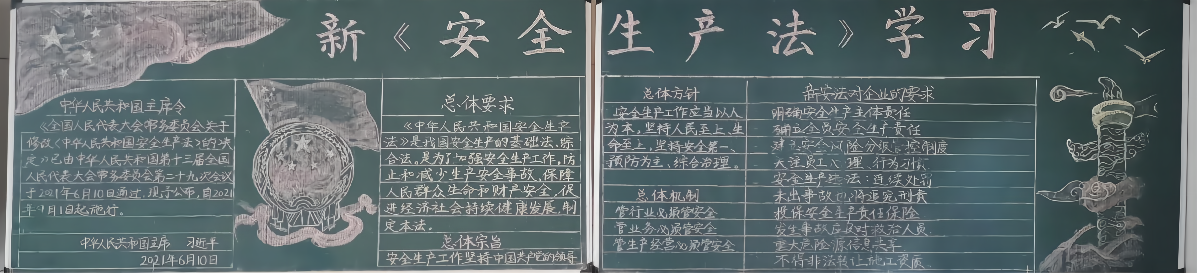 新《安全生产法》学习
中华人民共和国主席令
《全国人民代表大会常务委员会关于
修改〈中华人民共和国安全生产法〉的决
定》已由中华人民共和国第十三届全国
人民代表大会常务委员会第二十九次会议
于2021年6月10日通过，现予公布，自2021
年9月1日起施行。
中华人民共和国主席 习近平
2021年6月10日
总体要求
《中华人民共和国安全生产
法》是我国安全生产的基础法、综
合法。是为了加强安全生产工作，防
止和减少生产安全事故，保障
人民群众生命和财产安全，促
进经济社会持续健康发展，制
定本法。
总体宗旨
安全生产工作坚持中国共产党的领导
总体方针
安全生产工作应当以人
为本，坚持人民至上、生
命至上，坚持安全第一、
预防为主、综合治理。
总体机制
管行业必须管安全
管业务必须管安全
管生产经营必须管安全
新安法对企业的要求
明确安全生产主体责任
明确全员安全生产责任
建立安全风险分级管控制度
关注员工心理、行为习惯
安全生产违法：连续处罚
未出事故也将追究刑责
投保安全生产责任保险
发生事故后及时救治人员
重大危险源信息共享
不得非法转让施工资质